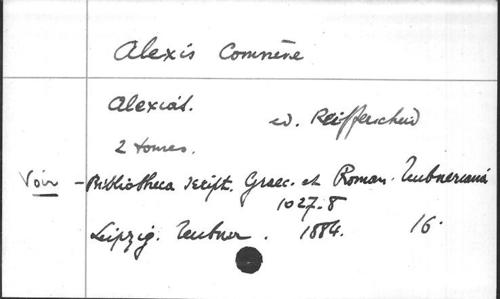 Alexis Comnène
Alexias. ed. Reifferscheid
2 tomes.
Voir - Bibliotheca script. Graec. et Roman. Teubneriana
1027-8
Leipzig. Teubner. 1884. 16.